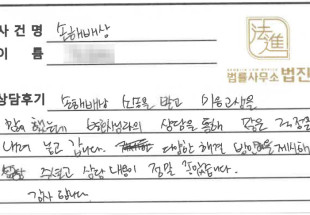 사 건 명 손해배상
이 름
法進
법률사무소 법진
상담후기 손해배상 소송을 받고 마음고생을
많이 했는데 변호사님과의 상담을 통해 많은 걱정을
내려 놓고 갑니다. 다양한 해결 방안을 제시해
주셨고 상담 내용이 정말 좋았습니다.
감사 합니다.